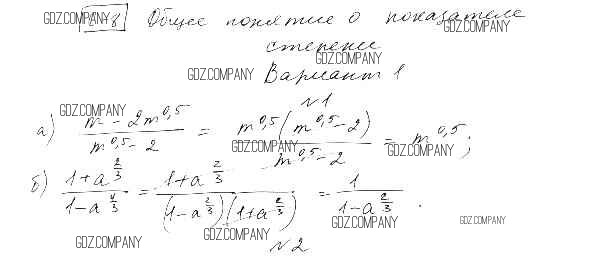 Общее понятие о показателе
степени
GDZ.COMPANY GDZ.COMPANY GDZ.COMPANY
GDZ.COMPANY Вариант 1
N1
GDZ.COMPANY
а) (m - 2m^0,5)/(m^0,5 - 2) = (m^0,5(m^0,5 - 2))/(m^0,5 - 2) = m^0,5;
GDZ.COMPANY GDZ.COMPANY
б) (1+a^(2/3))/(1-a^(4/3)) = (1+a^(2/3))/((1-a^(2/3))(1+a^(2/3))) = 1/(1-a^(2/3)).
GDZ.COMPANY GDZ.COMPANY GDZ.COMPANY GDZ.COMPANY
N2